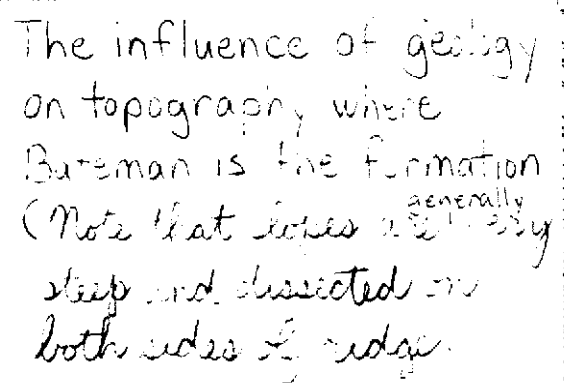 The influence of geology
on topography where
Bateman is the formation
(Note that slopes are generally very
steep and dissected on
both sides of ridge.